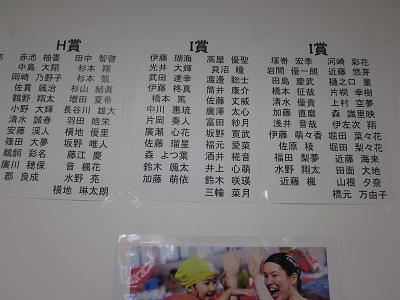 H賞
赤池 柚香 田中 智啓
中島 大翔 杉本 翔
岡崎 乃野子 杉本 凱
佐賀 颯治 杉山 結眞
鶴野 翔太 増田 夏希
小野 大輝 長谷川 雄大
清水 誠春 羽田 皓栄
安藤 渓人 横地 優里
篠田 大夢 坂野 唯人
鵜飼 彩名 藤江 慶
廣川 穂保 音 楓花
郡 良成 水野 亮
横地 琳太朗
I賞
伊藤 瑚海 高屋 優聖
光井 大輝 貝沼 瞳
武田 達幸 渡邊 聡士
伊藤 柊真 筒井 康介
橋本 篤 佐藤 丈威
中川 惠琉 浅井 太心
片岡 奏人 富田 紗月
廣瀬 心花 坂野 寛武
佐藤 瑠星 福元 愛菜
森 よつ葉 酒井 椛音
鈴木 颯太 井上 心萌
加藤 萌依 鈴木 咲瑛
三輪 菜月
I賞
塚嵜 宏季 河崎 彩花
岩間 優一朗 近藤 悠芽
田島 慶武 樋之口 菫
橋本 征哉 片桐 幸樹
清水 優貴 上村 空夢
加藤 直磨 森 識里映
浅井 音哉 伊左次 翔
伊藤 萌々香 堀田 菜々花
佐原 稜 堀田 梨々花
福田 梨夢 近藤 海来
水野 翔太 田面 大地
近藤 楓 山根 夕奈
橋元 万由子